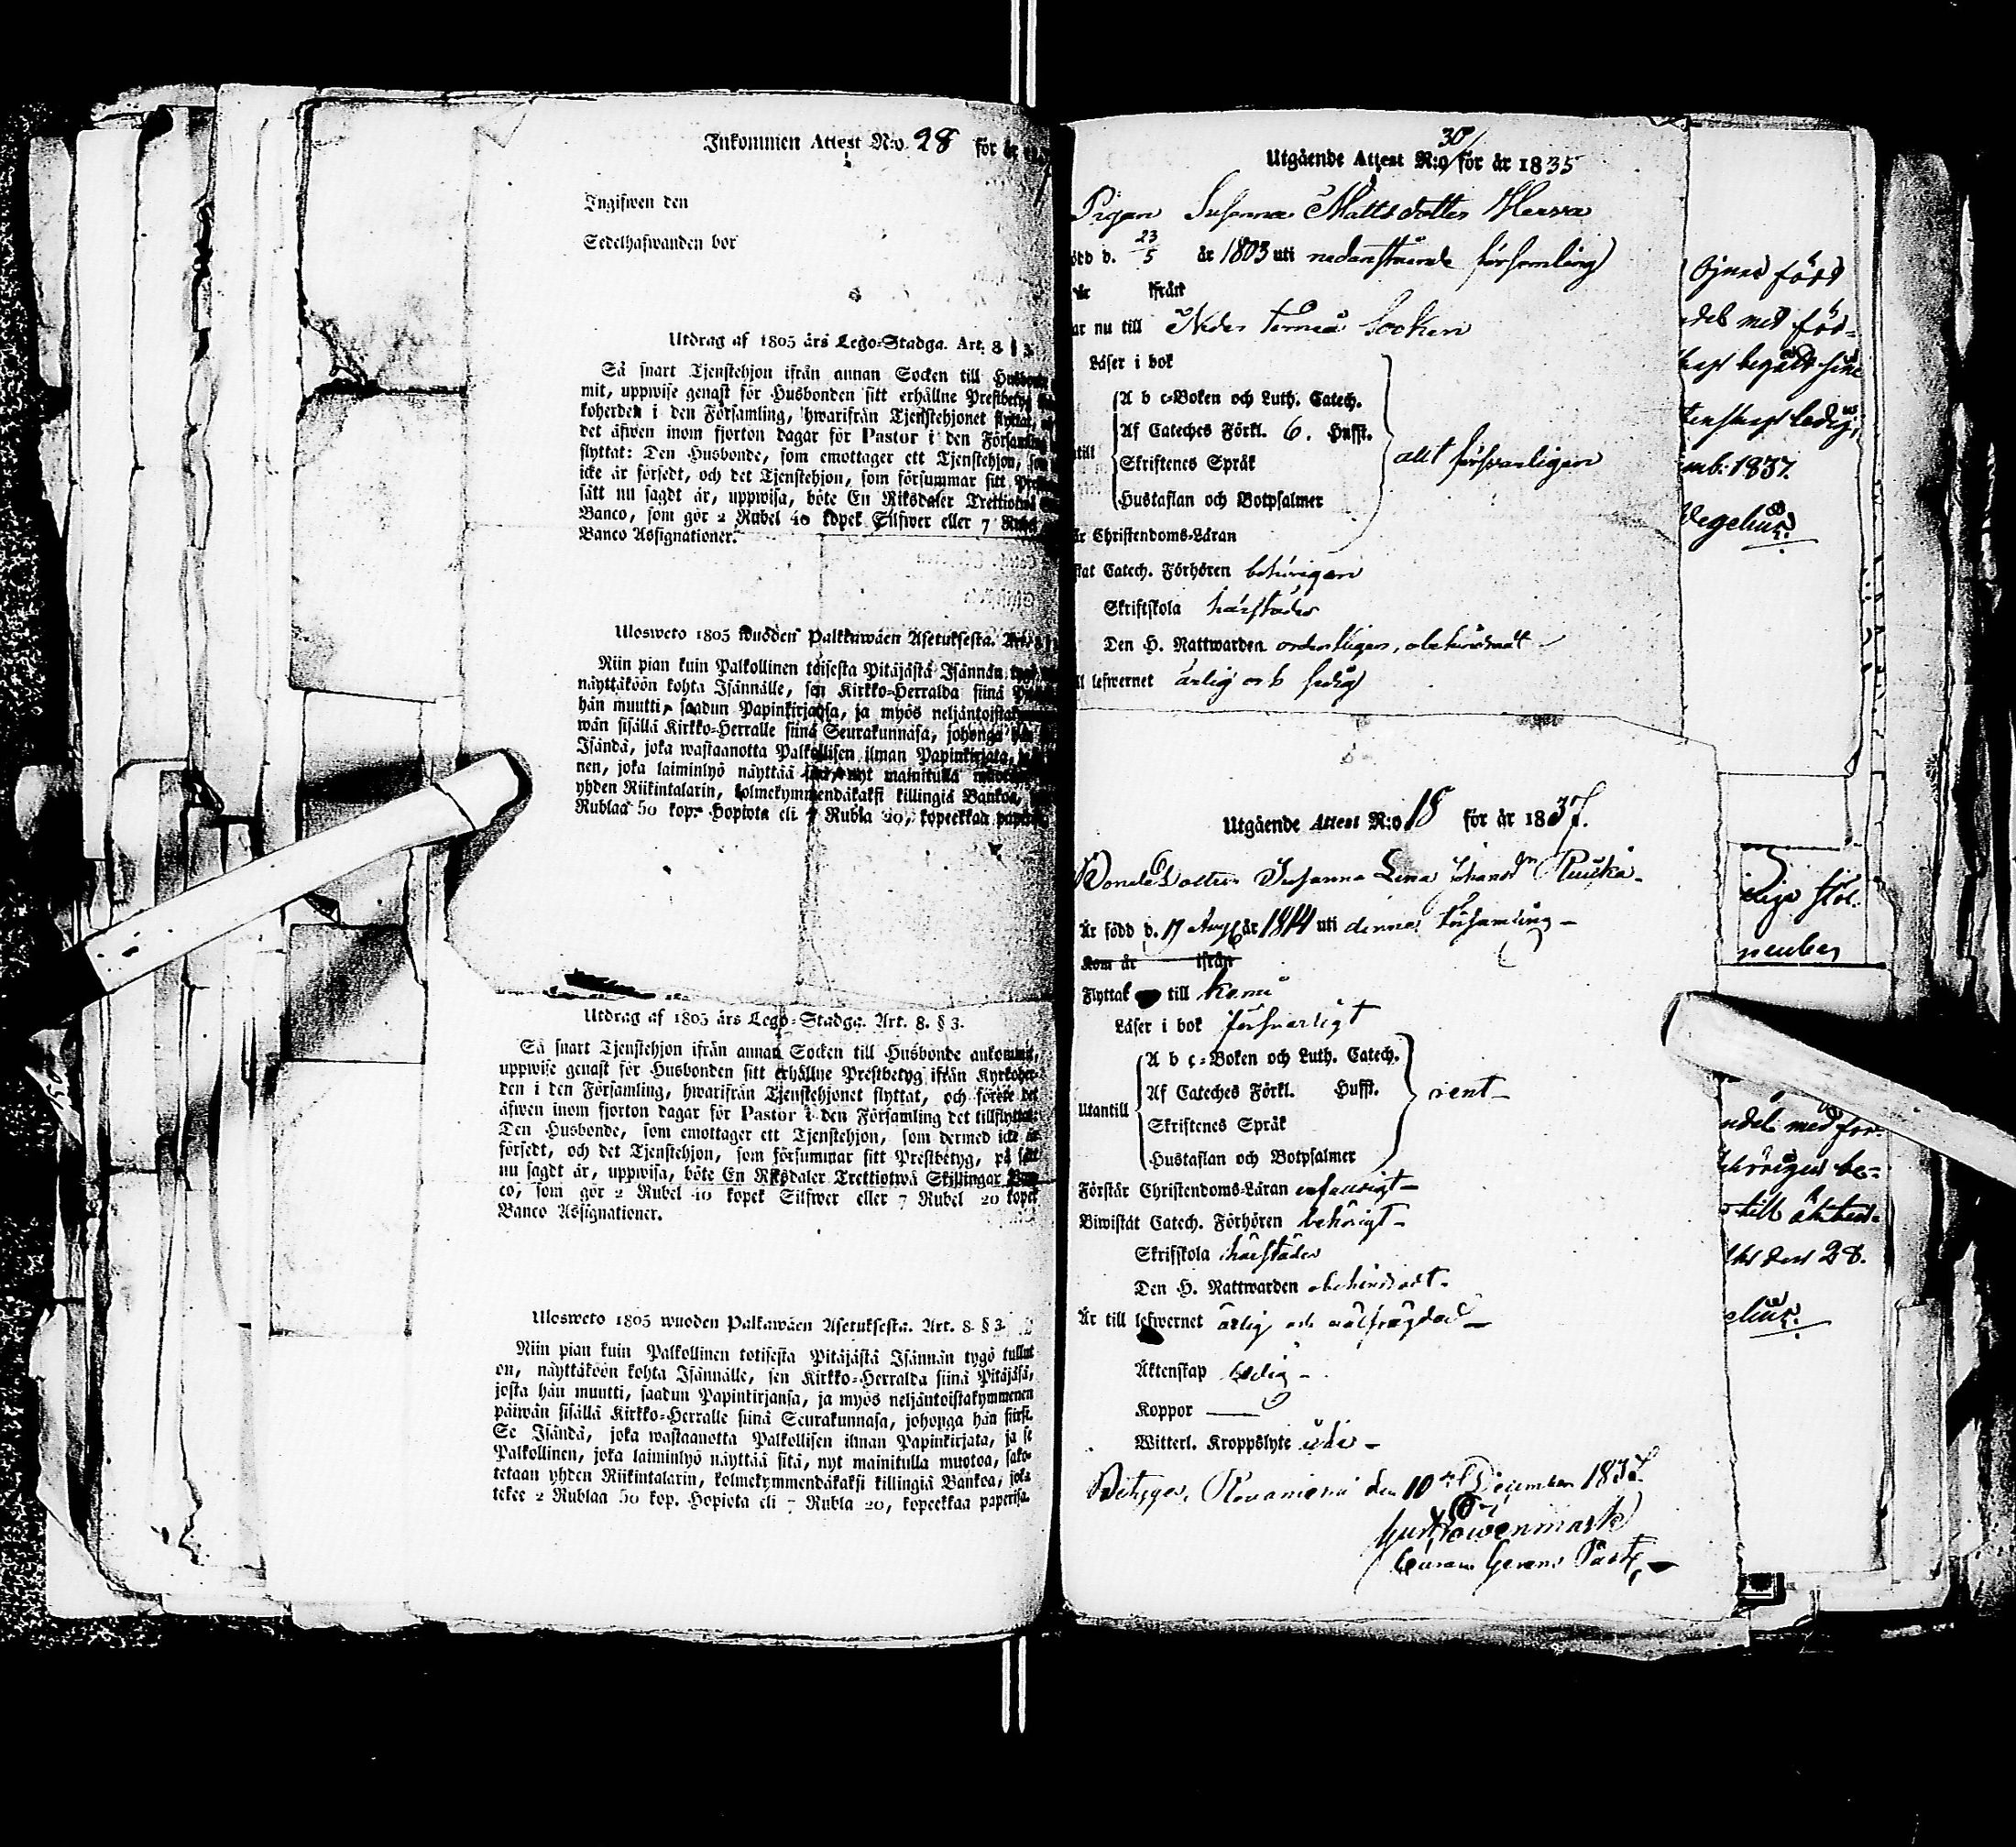 Inkommen Attest N:o 28 för år
Ingifwen den
Sedelhafwanden bor
Utdrag af 1805 års Lego-Stadga. Art. 8 § 3.
Så snart Tjenstehjon ifrån annan Socken till
mit, uppwise genast för Husbonden sitt erhållne Prestbetyg
koherden i den Församling, hwarifrån Tjenstehjonet flyttat,
det äfwen inom fjorton dagar för Pastor i den Församling
flyttat: Den Husbonde, som emottager ett Tjenstehjon,
icke är försedt, och det Tjenstehjon, som försummar sitt
sätt nu sagdt är, uppwisa, böte En Riksdaler Trettiotwå
Banco, som gör 2 Rubel 40 kopek Silfwer eller 7
Banco Assignationer.
Ulosweto 1805 wuoden Palkkawäen Asetuksesta.
Niin pian kuin Palkollinen toisesta Pitäjästä Isännän
näyttäköön kohta Isännälle, sen Kirkko-Herralda siinä
hän muutti, saadun Papinkirjansa, ja myös
wän sisällä Kirkko-Herralle siinä Seurakunnasa, johonga
Isändä, joka wastaanotta Palkollisen ilman Papinkirjata,
nen, joka laiminlyö näyttää nyt mainitulla
yhden Riikintalarin, kolmekymmendäkaksi killingiä Bankoa,
Rublaa 50 kop. Hopiota eli 7 Rubla 20, kopeekkaa
Utdrag af 1805 års Lego-Stadga. Art. 8. § 3.
Så snart Tjenstehjon ifrån annan Socken till Husbonde ankommit,
uppwise genast för Husbonden sitt erhållne Prestbetyg ifrån Kyrkoher-
den i den Församling, hwarifrån Tjenstehjonet flyttat, och förete det
äfwen inom fjorton dagar för Pastor i den Församling det tillflyttat:
Den Husbonde, som emottager ett Tjenstehjon, som dermed icke är
försedt, och det Tjenstehjon, som försummar sitt Prestbetyg, på sätt
nu sagdt är, uppwisa, böte En Riksdaler Trettiotwå Skillingar Ban-
co, som gör 2 Rubel 40 kopek Silfwer eller 7 Rubel 20 kopek
Banco Assignationer.
Ulosweto 1805 wuoden Palkawäen Asetuksesta. Art. 8 § 3.
Niin pian kuin Palkollinen totisesta Pitäjästä Isännän tygö tullut
on, näyttäköön kohta Isännälle, sen Kirkko-Herralda siinä Pitäjäsä,
josta hän muutti, saadun Papinkirjansa, ja myös neljäntoistakymmenen
päiwän sisällä Kirkko-Herralle siinä Seurakunnasa, johonga hän siirsi.
Se Isändä, joka wastaanotta Palkollisen ilman Papinkirjata, ja se
Palkollinen, joka laiminlyö näyttää sitä, nyt mainitulla muotoa, sako-
tetaan yhden Riikintalarin, kolmekymmendäkaksi killingiä Bankoa, joka
tekee 2 Rublaa 50 kop. Hopiota eli 7 Rubla 20, kopeekkaa paperisa.
Utgående Attest N:o 30 för år 1835
Pigan Susanna Mattsdotter Herva
född d. 23/5 år 1803 uti nedanstående församling
år ifrån
ar nu till Neder Torneå Socken
Läser i bok
A b c-Boken och Luth. Catech.
Af Cateches Förkl. 6. Hufst.
till
Skriftenes Språk
allt försvarligen
Hustaflan och Botpsalmer
r Christendoms-Läran
stat Catech. Förhören behörigen
Skriftskola härstädes
Den H. Nattwarden ordentligen, obehindradt
ll lefwernet ärlig och ledig
Utgående Attest N:o 18 för år 1837.
Bonde Dotter Susanna Lena Johansdr Ruuska
Är född d. 17 Aug år 1814 uti denna Församling
Kom år ifrån
Flyttat till Kemi
Läser i bok försvarligt
A b c-Boken och Luth. Catech.
Af Cateches Förkl. Hufst.
Utantill
rent
Skriftenes Språk
Hustaflan och Botpsalmer
Förstår Christendoms-Läran enfaldigt
Biwistat Catech. Förhören behörigt
Skrifskola härstädes
Den H. Nattwarden obehindradt
Är till lefwernet ärlig och välfrägdad
Äktenskap ledig
Koppor
Witterl. Kroppslyte
Betygar, Rovaniemi den 10de December 1837.
Löwenmark
Curam Gerens Past.
Ojnas född
del med för-
hafs begått sine
tenskap ledig;
mb. 1837.
Wegelius
ndel med för
hörigen be-
till äkten-
den 28.
elius